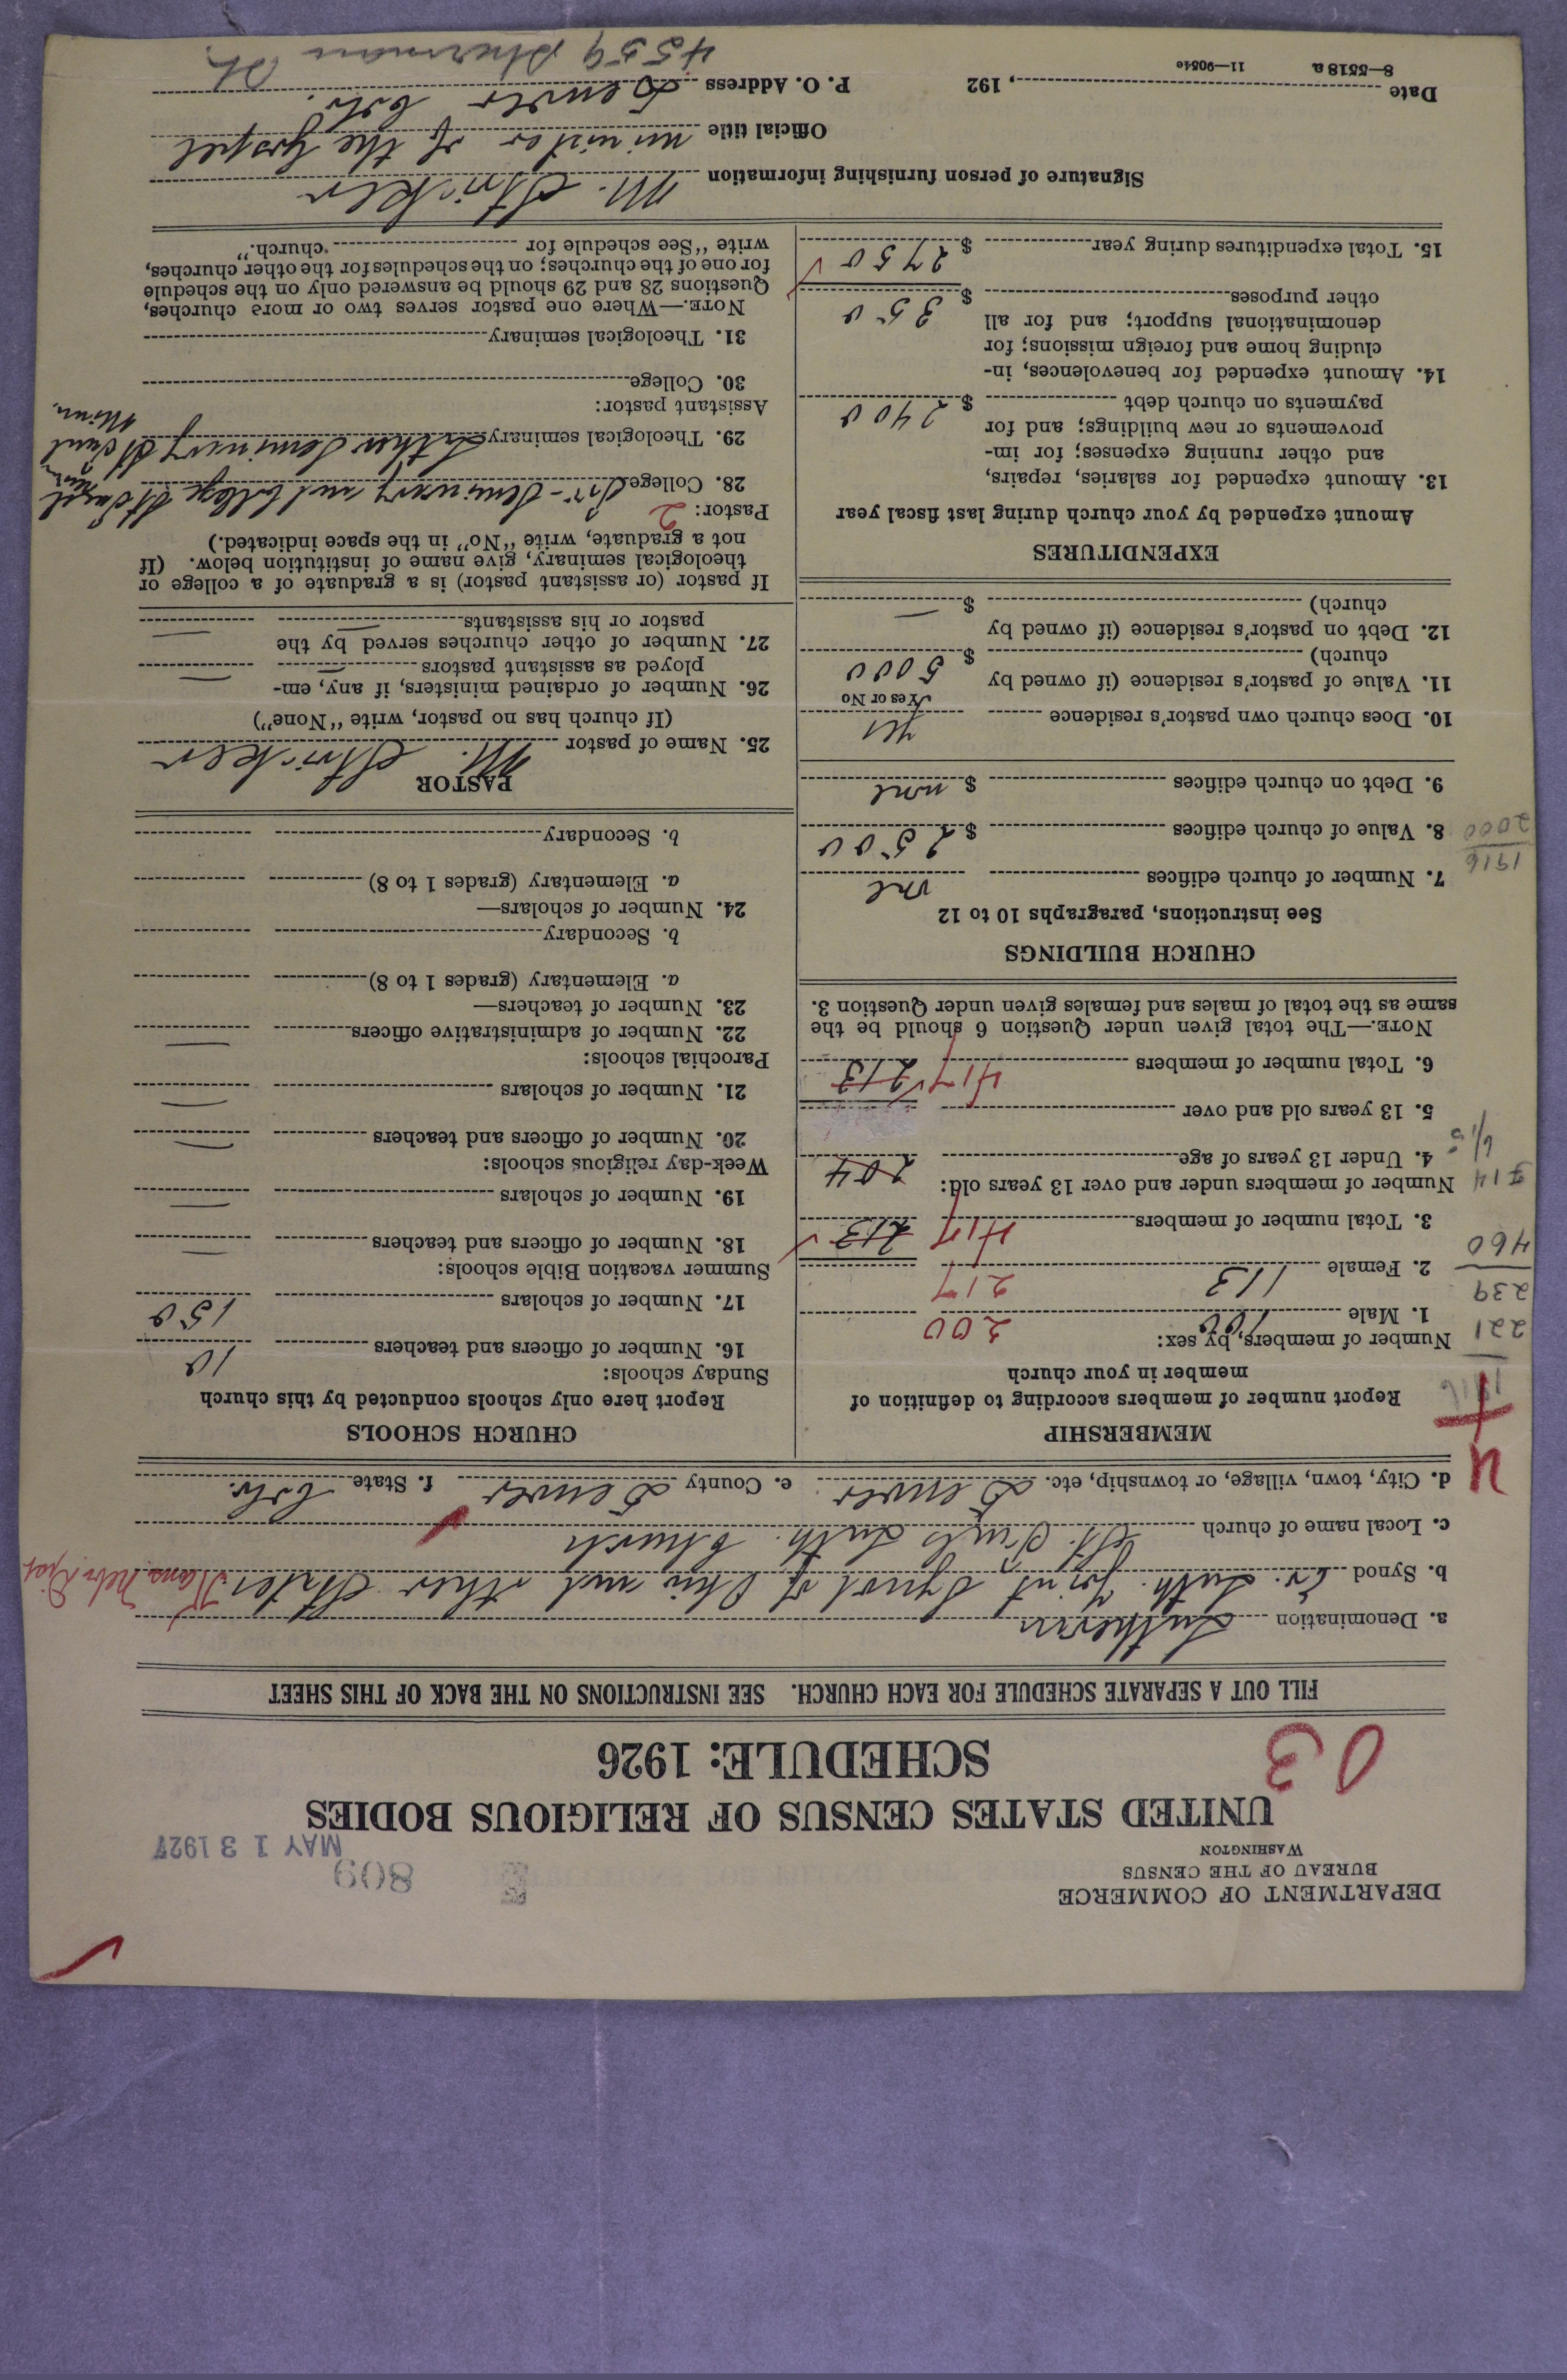 DEPARTMENT OF COMMERCE
BUREAU OF THE CENSUS
WASHINGTON
809
MAY 13 1927
UNITED STATES CENSUS OF RELIGIOUS BODIES
SCHEDULE: 1926
03
FILL OUT A SEPARATE SCHEDULE FOR EACH CHURCH. SEE INSTRUCTIONS ON THE BACK OF THIS SHEET
a. Denomination Lutheran
b. Synod Ev. Luth. Joint Synod of Ohio and other States Kans. Nebr. Dist
c. Local name of church St. Paul's Luth. Church
d. City, town, village, or township, etc. Denver e. County Denver f. State Colo.
MEMBERSHIP
Report number of members according to definition of
member in your church
Number of members, by sex:
1. Male 100 200
2. Female 113 217
3. Total number of members 417 213
Number of members under and over 13 years old:
4. Under 13 years of age 204
5. 13 years old and over
6. Total number of members 417 213
NOTE.—The total given under Question 6 should be the
same as the total of males and females given under Question 3.
221
239
460
714
CHURCH BUILDINGS
See instructions, paragraphs 10 to 12
7. Number of church edifices one
8. Value of church edifices $ 2500
9. Debt on church edifices $ none
1916
2000
10. Does church own pastor's residence yes
Yes or No
11. Value of pastor's residence (if owned by
church) $ 5000
12. Debt on pastor's residence (if owned by
church) $ —
EXPENDITURES
Amount expended by your church during last fiscal year
13. Amount expended for salaries, repairs,
and other running expenses; for im-
provements or new buildings; and for
payments on church debt $ 2400
14. Amount expended for benevolences, in-
cluding home and foreign missions; for
denominational support; and for all
other purposes $ 350
15. Total expenditures during year $ 2750
CHURCH SCHOOLS
Report here only schools conducted by this church
Sunday schools:
16. Number of officers and teachers 10
17. Number of scholars 150
Summer vacation Bible schools:
18. Number of officers and teachers —
19. Number of scholars —
Week-day religious schools:
20. Number of officers and teachers —
21. Number of scholars —
Parochial schools:
22. Number of administrative officers —
23. Number of teachers—
a. Elementary (grades 1 to 8)
b. Secondary
24. Number of scholars—
a. Elementary (grades 1 to 8)
b. Secondary
PASTOR
25. Name of pastor M. Stricker
(If church has no pastor, write "None")
26. Number of ordained ministers, if any, em-
ployed as assistant pastors — —
27. Number of other churches served by the
pastor or his assistants — —
If pastor (or assistant pastor) is a graduate of a college or
theological seminary, give name of institution below. (If
not a graduate, write "No" in the space indicated.)
Pastor: 2
28. College Pro-Seminary and College St Paul Minn
29. Theological seminary Luther Seminary St Paul Minn.
Assistant pastor:
30. College
31. Theological seminary
NOTE.—Where one pastor serves two or more churches,
Questions 28 and 29 should be answered only on the schedule
for one of the churches; on the schedules for the other churches,
write "See schedule for church."
Signature of person furnishing information M. Stricker
Official title minister of the Gospel
Date , 192 P. O. Address Denver Colo.
4559 Sherman St.
8—5518 a 11—9054c